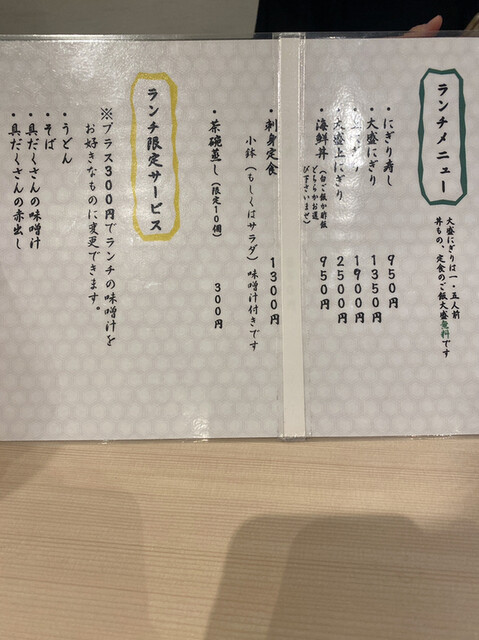 ランチメニュー
大盛にぎりは一・五人前
丼もの、定食のご飯大盛無料です
・にぎり寿し 950円
・大盛にぎり 1350円
・上にぎり 1900円
・大盛上にぎり 2500円
・海鮮丼 950円
(白ご飯か酢飯
どちらかお選
び下さいませ)
・刺身定食 1300円
小鉢(もしくはサラダ)味噌汁付きです
・茶碗蒸し(限定10個) 300円
ランチ限定サービス
※プラス300円でランチの味噌汁を
お好きなものに変更できます。
・うどん
・そば
・具だくさんの味噌汁
・具だくさんの赤出し